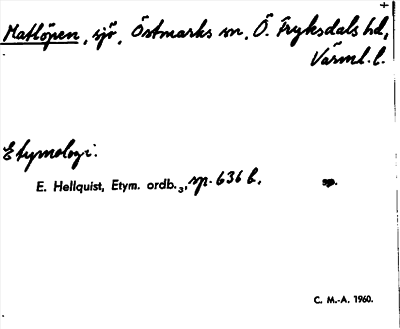 Matlöpen, sjö, Östmarks sn, Ö. Fryksdals hd,
Värml. l.
Etymologi:
E. Hellquist, Etym. ordb.₃, sp. 636 b.
sp.
C. M.-A. 1960.